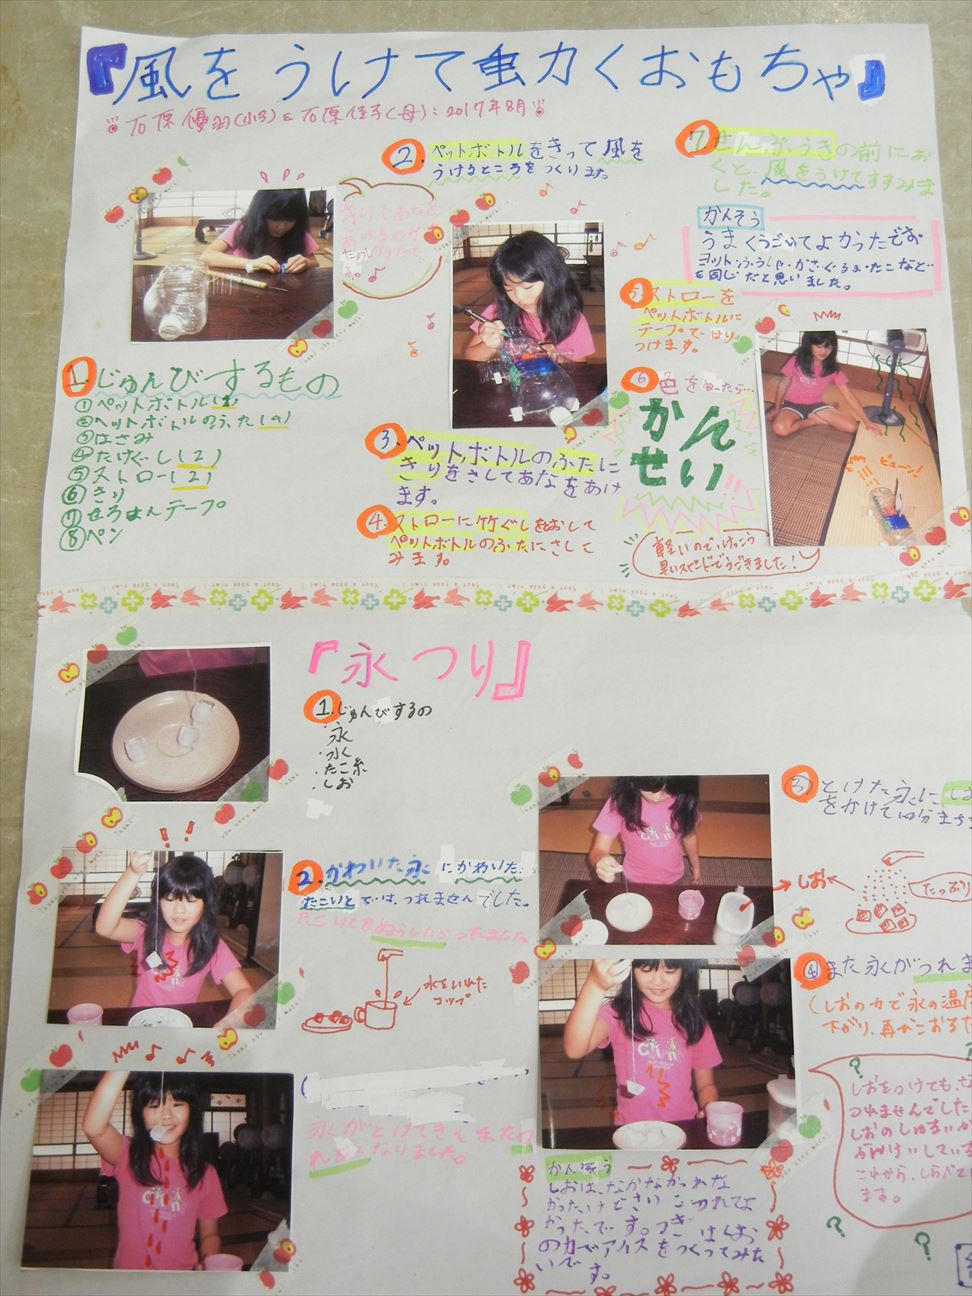 『風をうけて動くおもちゃ』
石原優羽(小3)&石原佳子(母):2017年8月
1.じゅんびするもの
①ペットボトル(1)
②ペットボトルのふた(4)
③はさみ
④たけぐし(2)
⑤ストロー(2)
⑥きり
⑦せろはんテープ
⑧ペン
きりであなを
あけるのが
たのしかったです
2.ペットボトルをきって風を
うけるところをつくります。
3.ペットボトルのふたに
きりをさしてあなをあけ
ます。
4.ストローに竹ぐしをさして
ペットボトルのふたにさしこ
みます。
5.ストローを
ペットボトルに
テープではり
つけます。
6.色をぬったら…
かん
せい!!
軽いのでけっこう
早いスピードでうごきました!
7.せんぷうきの前にお
くと、風をうけてすすみま
した。
かんそう
うまくうごいてよかったです。
ヨット・ふうしゃ・かざぐるま・たこなど…
も同じだと思いました。
ビューン!
『氷つり』
1.じゅんびするの
・氷
・水
・たこ糸
・しお
2.かわいた氷にかわいた
たこいとではつれませんでした。
たこいとをぬらしたらつれました
水をいれた
コップ
氷がとけてきてまたつ
れなくなりました。
3.とけた氷にしお
をかけて10分まちま
しお
たっぷり
4.また氷がつれま
(しおの力で氷の温度
下がり、再びこおるた
しおをつけても、な
つれませんでした
しおのしゅるいが
ぶんけいしている
これから、しらべて
ます。
かん想う
しおは、なかなかつれな
かったけどさいごつれてよ
かったです。つぎはしお
の力でアイスをつくってみた
いで
す。